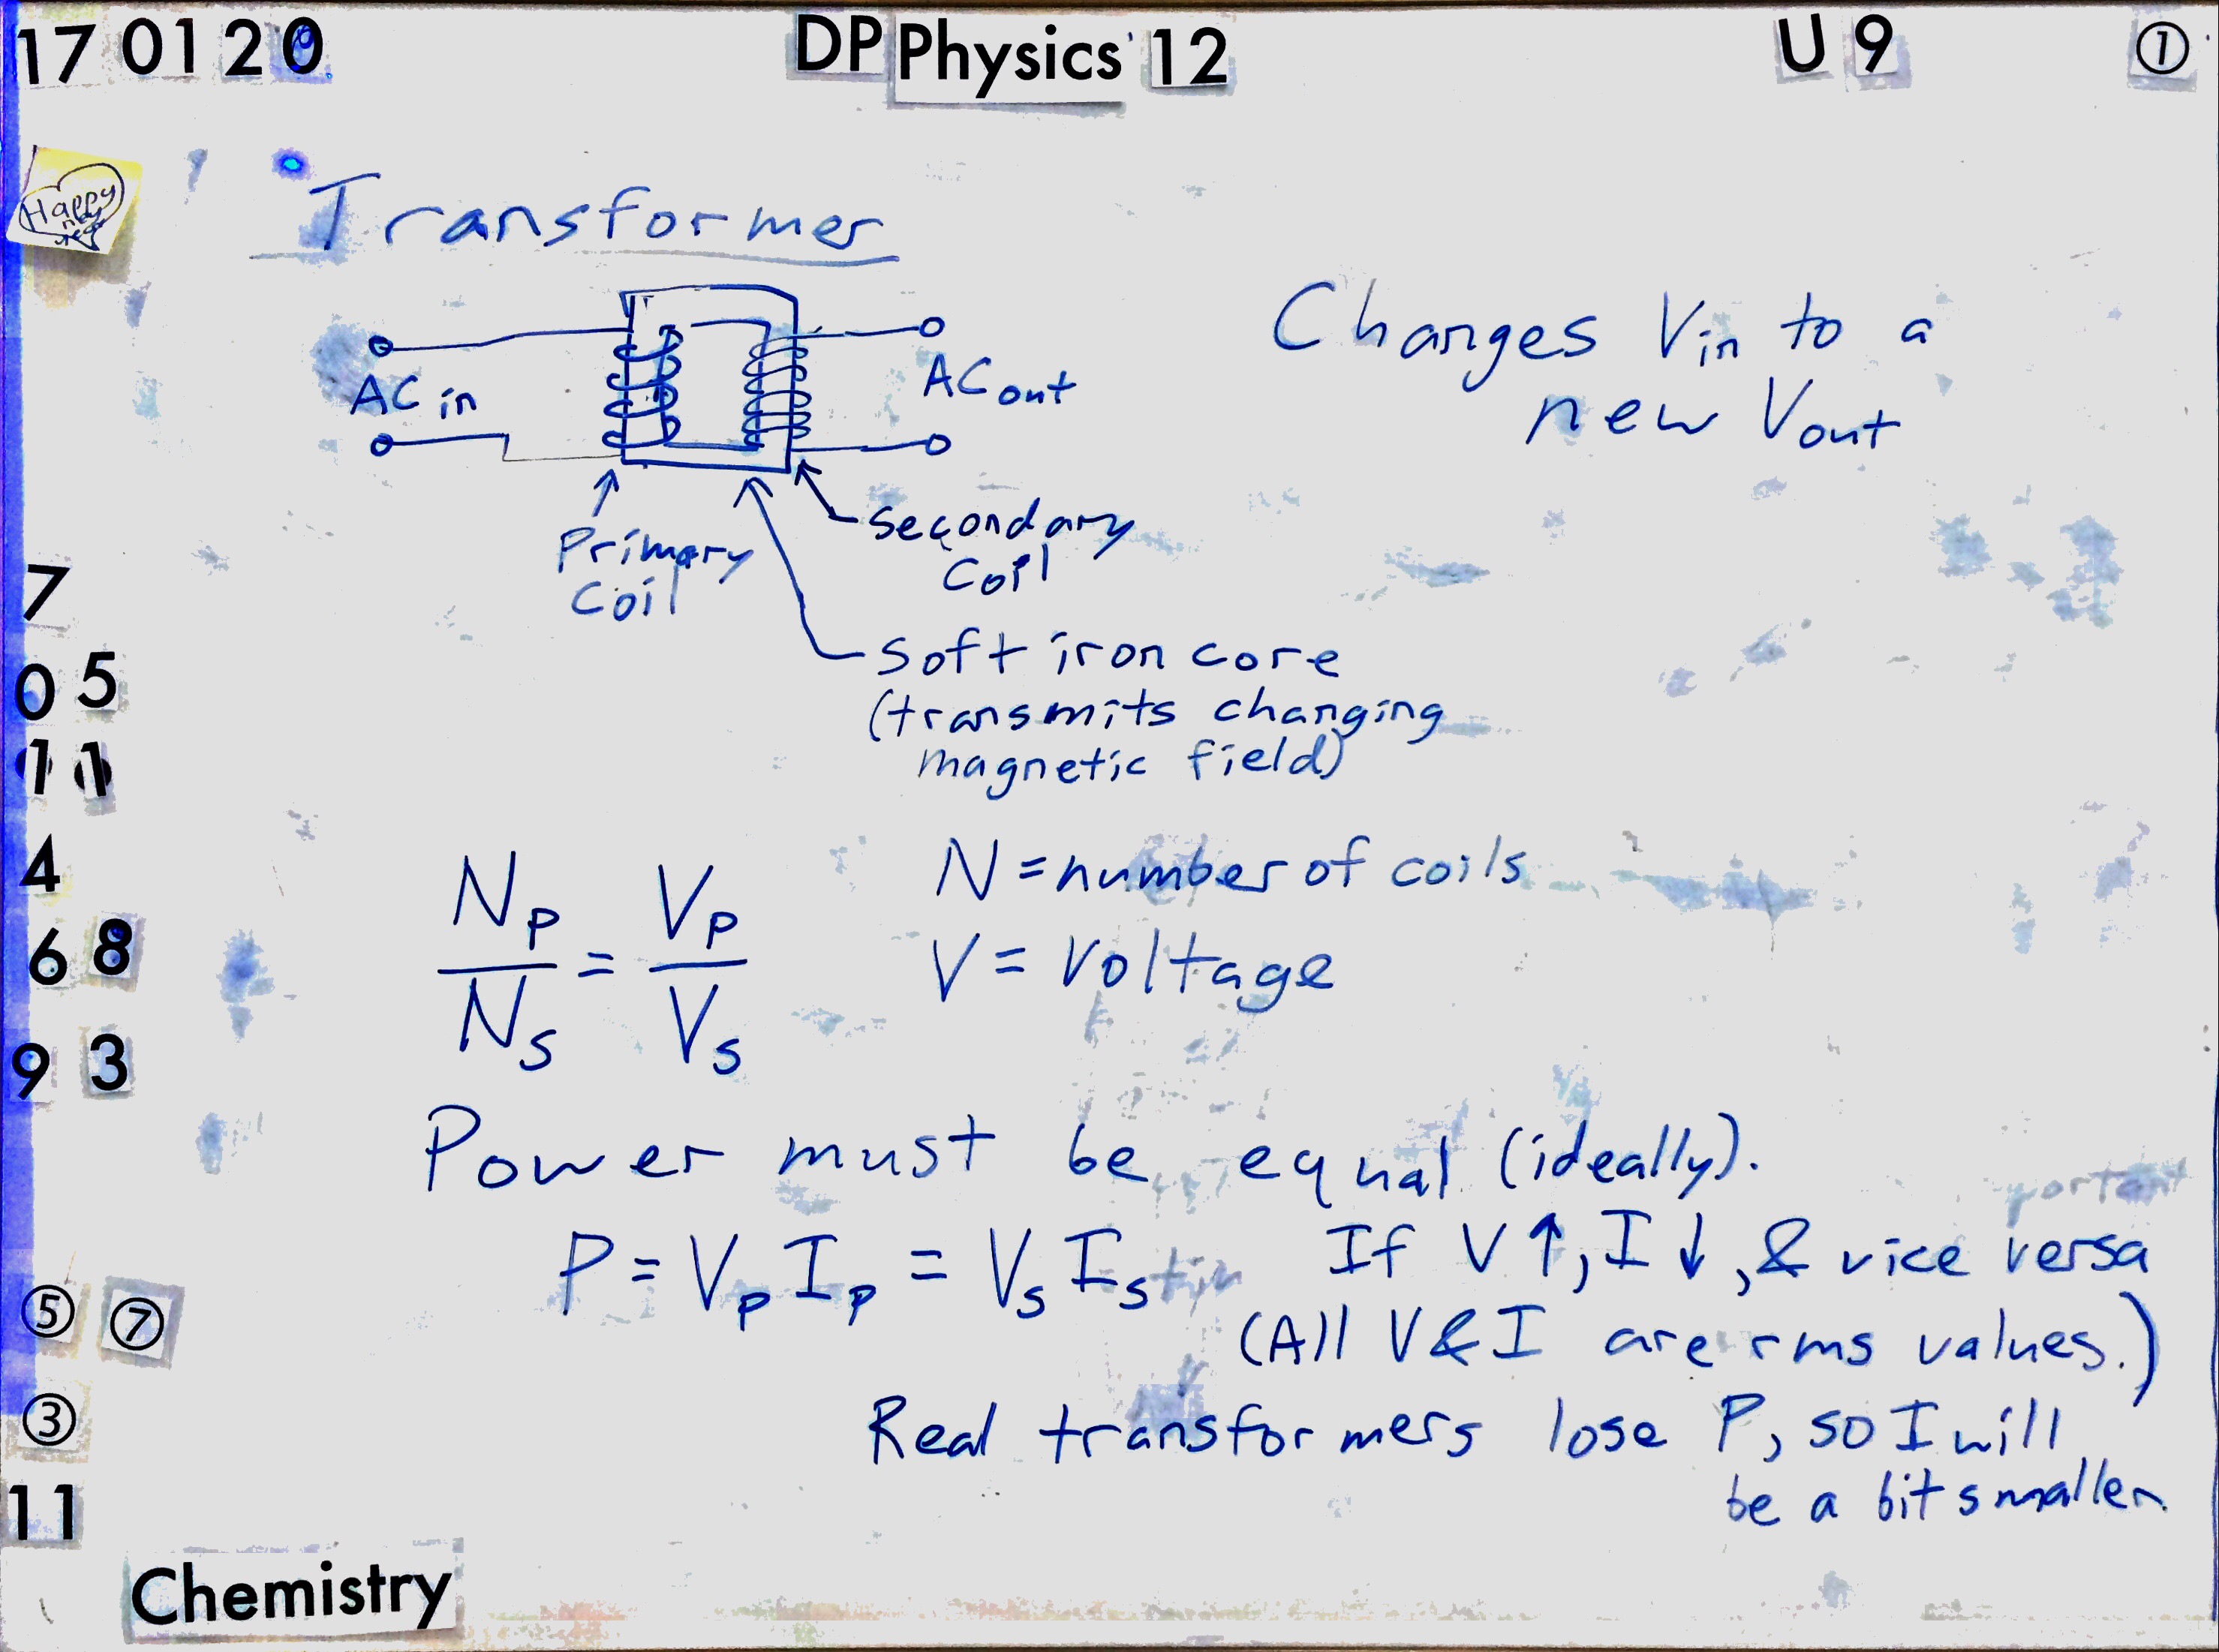 17 01 20 DP Physics 12 U 9 ①
Happy
new
year
Transformer
Changes Vin to a
new Vout
AC in
AC out
Primary
Coil
Secondary
Coil
Soft iron core
(transmits changing
magnetic field)
7
0 5
1 1
4
6 8
9 3
⑤ ⑦
③
11
Np/Ns = Vp/Vs
N = number of coils
V = Voltage
Power must be equal (ideally).
portant
P = VpIp = VsIs If V↑, I↓, & vice versa
(All V & I are rms values.)
Real transformers lose P, so I will
be a bit smaller.
Chemistry